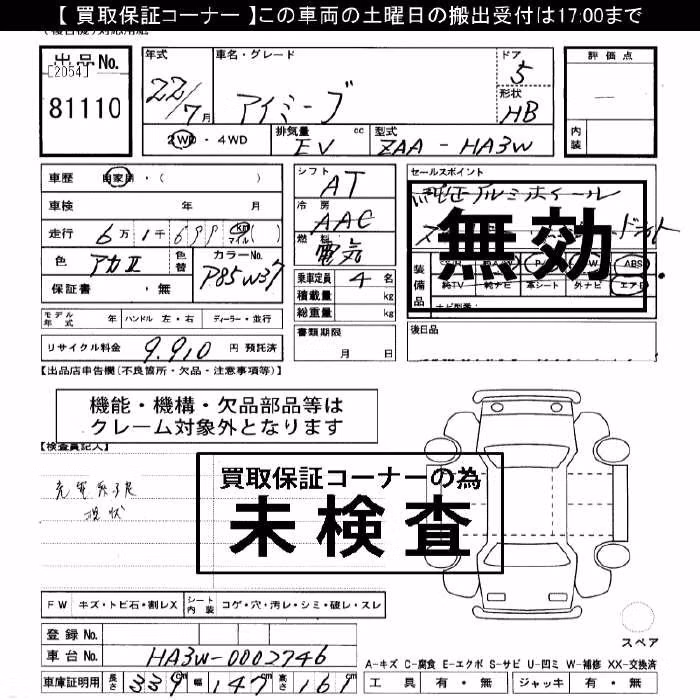 【 買取保証コーナー 】この車両の土曜日の搬出受付は17:00まで
出品No.
[2054]
81110
年式
22/7月
車名・グレード
アイミーブ
ドア
5
形状
HB
評価点
内装
2WD・4WD
排気量 cc
EV
型式
ZAA-HA3W
車歴 自家用・( )
シフト
AT
セールスポイント
純正アルミホイール
車検 年 月
冷房
AAC
走行 6万1千699 km マイル ( )
燃料
電気
無効
色 アカII 色替 カラーNo. P85W37
乗車定員 4名
保証書 ・無
積載量 kg
総重量 kg
装備品
ABS
純TV 純ナビ 革シート 外ナビ エアB
モデル年式 年 ハンドル 左・右 ディーラー・並行
書類期限
月 日
後日品
リサイクル料金 9,910 円 預託済
【出品店申告欄(不良箇所・欠品・注意事項等)】
機能・機構・欠品部品等は
クレーム対象外となります
【検査員記入】
現状
買取保証コーナーの為
未検査
FW キズ・トビ石・割レX シート内装 コゲ・穴・汚レ・シミ・破レ・スレ
スペア
登録No.
車台No. HA3W-0002746
A-キズ C-腐食 E-エクボ S-サビ U-凹ミ W-補修 XX-交換済
車庫証明用 長さ 339cm 幅 147cm 高さ 161cm
工具 有・無 ジャッキ 有・無